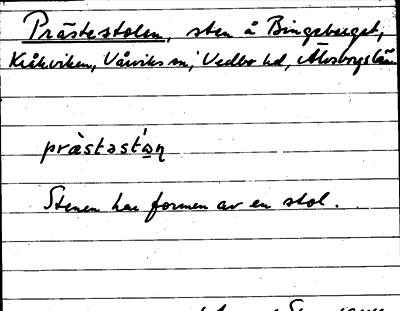 Prästestolen, sten å Bingsberget,
Kråkviken, Vårviks sn, Vedbo hd, Älvsborgs län
prästəst
Stenen har formen av en stol.